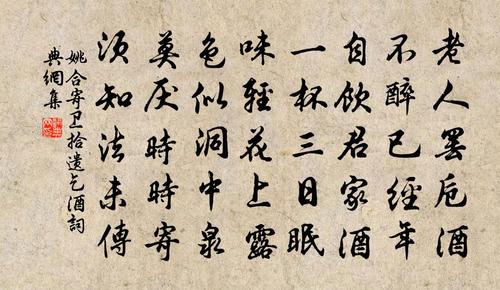 老人罢卮酒
不醉已经年
自饮君家酒
一杯三日眠
味轻花上露
色似洞中泉
莫厌时时寄
须知法未传
姚合寄卫拾遗乞酒词
典网集